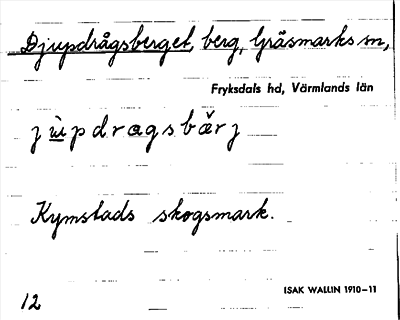 Djupdrågsberget, berg, Gräsmarks sn,
Fryksdals hd, Värmlands län
j ù̱ p d r a g s b æ̌ r j
Kymstads skogsmark.
ISAK WALLIN 1910–11
12